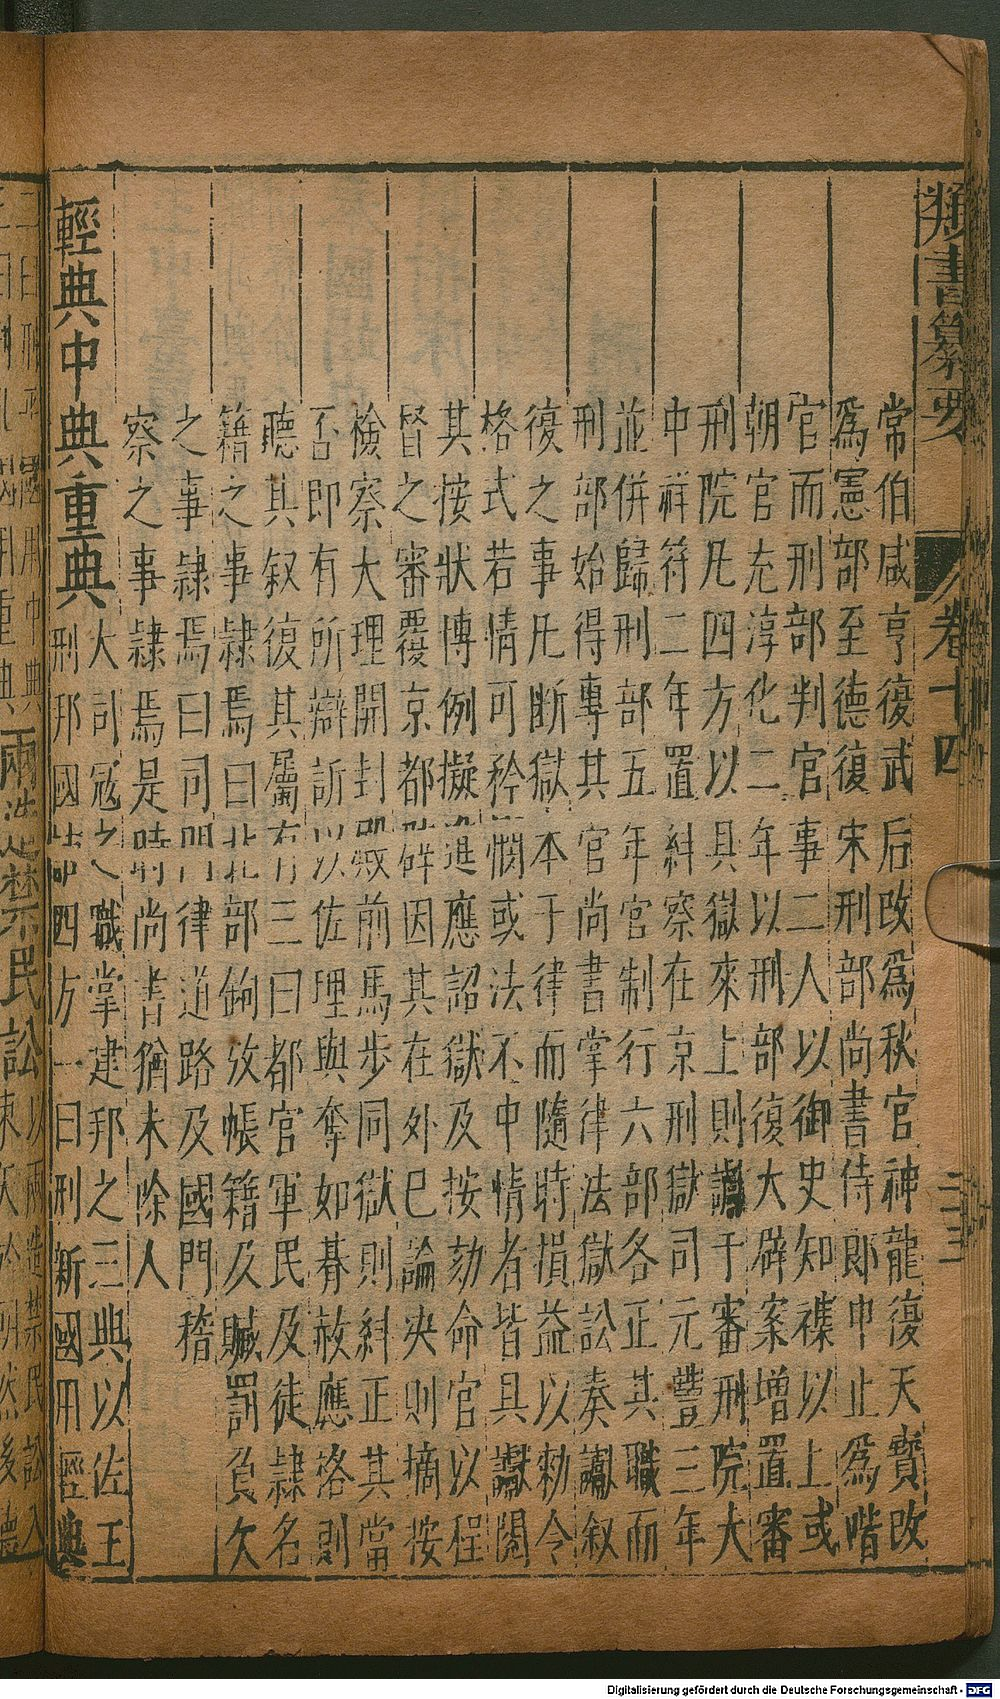 類書纂要
卷十四
常伯咸亨復武后改爲秋官神龍復天寶改
爲憲部至德復宋刑部尚書侍郎中止爲階
官而刑部判官事二人以御史知襍以上或
朝官充淳化二年以刑部復大辟案增置審
刑院凡四方以具獄來上則讞于審刑院大
中祥符二年置糾察在京刑獄司元豐三年
並併歸刑部五年官制行六部各正其職而
刑部始得專其官尚書掌律法獄訟奏讞叙
復之事凡斷獄本于律而隨時損益以勑令
格式若情可矜憫或法不中情者皆具讞閱
其按狀傳例擬進應詔獄及按劾命官以程
督之審覆京都辟因其在外巳論决則摘按
檢察大理開封殿前馬步同獄則糾正其當
否即有所辯訴以佐理與奪如朞赦應格則
聽其叙復其屬有三曰都官軍民及徒隷名
籍之事隷焉曰比部鉤攷帳籍及贓罰負欠
之事隷焉曰司門律道路及國門稽
察之事隷焉是時尚書猶未除人
輕典中典重典
大司寇之職掌建邦之三典以佐王
刑邦國詰四方一曰刑新國用輕典
二曰刑平國用中典
兩造禁民訟
以兩造禁民訟入
束矢於朝然後聽
Digitalisierung gefördert durch die Deutsche Forschungsgemeinschaft - DFG